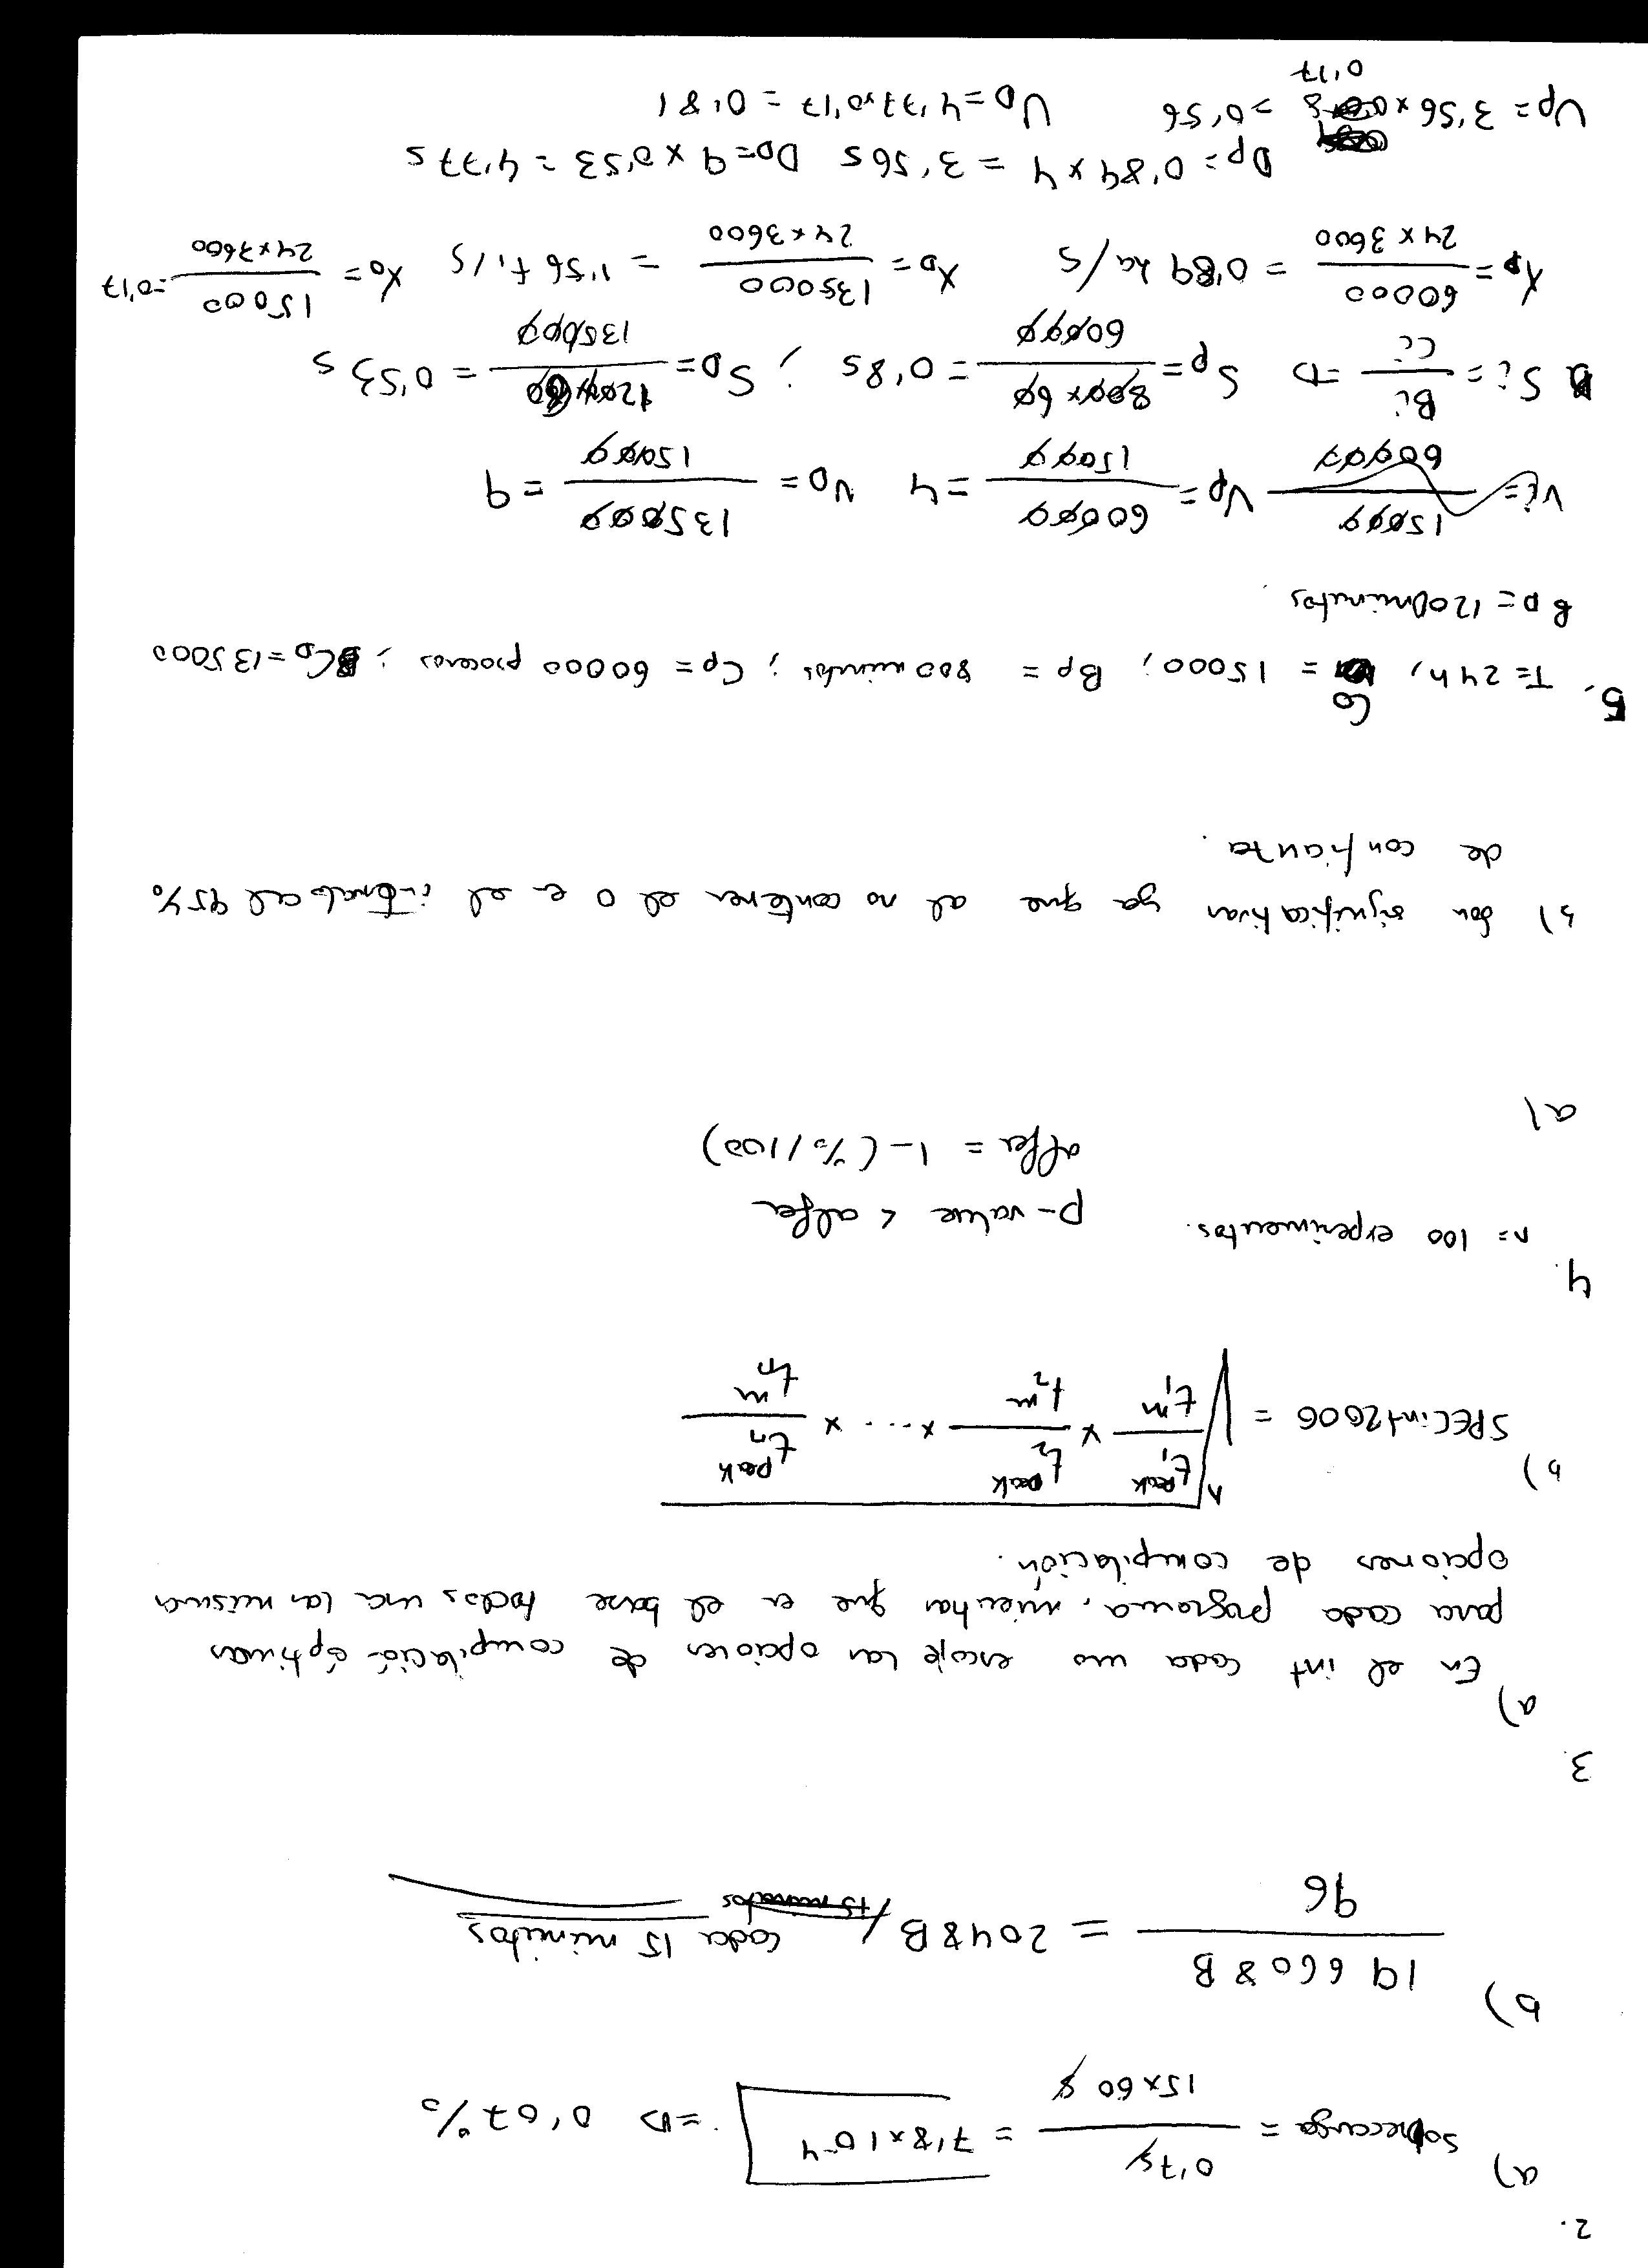 2.
a) Sobrecarga = 0'7s / 15x60 s = 7'8x10^-4 => 0'07%
b) 196608B / 96 = 2048B / cada 15 minutos
15 minutos
3.
a)
En el int cada uno escoje las opciones de compilación óptimas
para cada programa, mientras que en el base todos usa las misma
opciones de compilación.
b)
SPECint2006 = ⁿ√( t₁^peak / t₁^m x t₂^peak / t₂^m x .... x tₙ^peak / tₙ^m )
4.
n= 100 experimentos.
p-value < alfa
alfa = 1-(%/100)
a)
b) Son significativas ya que al no contener el 0 en el intervalo al 95%
de confianza.
5.
T= 24h, C₀ = 15000; Bp = 800 minutos; Cp= 60000 procesos; C_D=135000
B_D= 1200minutos.
Vi= 15000 / 60000 Vp= 60000 / 15000 =4 V_D= 135000 / 15000 = 9
Si= Bi / Ci => Sp= 800x60 / 60000 = 0'8s ; S_D= 1200x60 / 135000 = 0'53 s
Xp= 60000 / 24x3600 = 0'89 ha/s X_D= 135000 / 24x3600 = 1'56 fi/s X₀= 15000 / 24x3600 =0'17
Dp= 0'89x4 = 3'56s D_D= 9x0'53= 4'77s
Up= 3'56x 0'17 =0'56 U_D=4'77x0'17 = 0'81